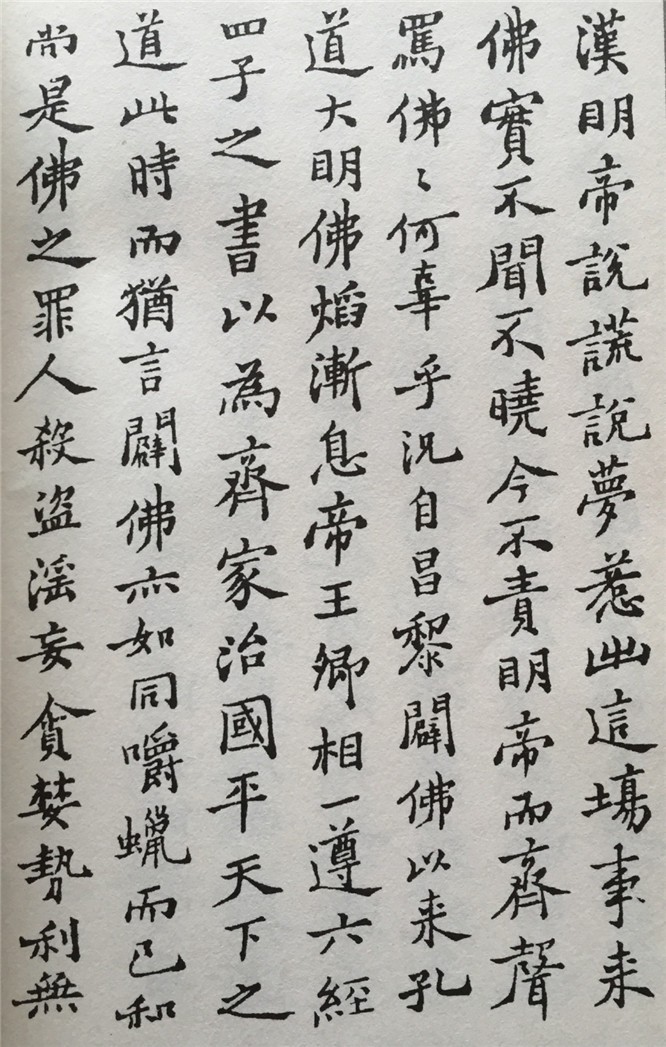 漢明帝說謊說夢惹出這場事來
佛實不聞不曉今不責明帝而齊聲
罵佛〻何辜乎況自昌黎闢佛以来孔
道大明佛焰漸息帝王卿相一遵六經
四子之書以為齊家治國平天下之
道此時而猶言闢佛亦如同嚼蠟而已和
尚是佛之罪人殺盜淫妄貪婪勢利無